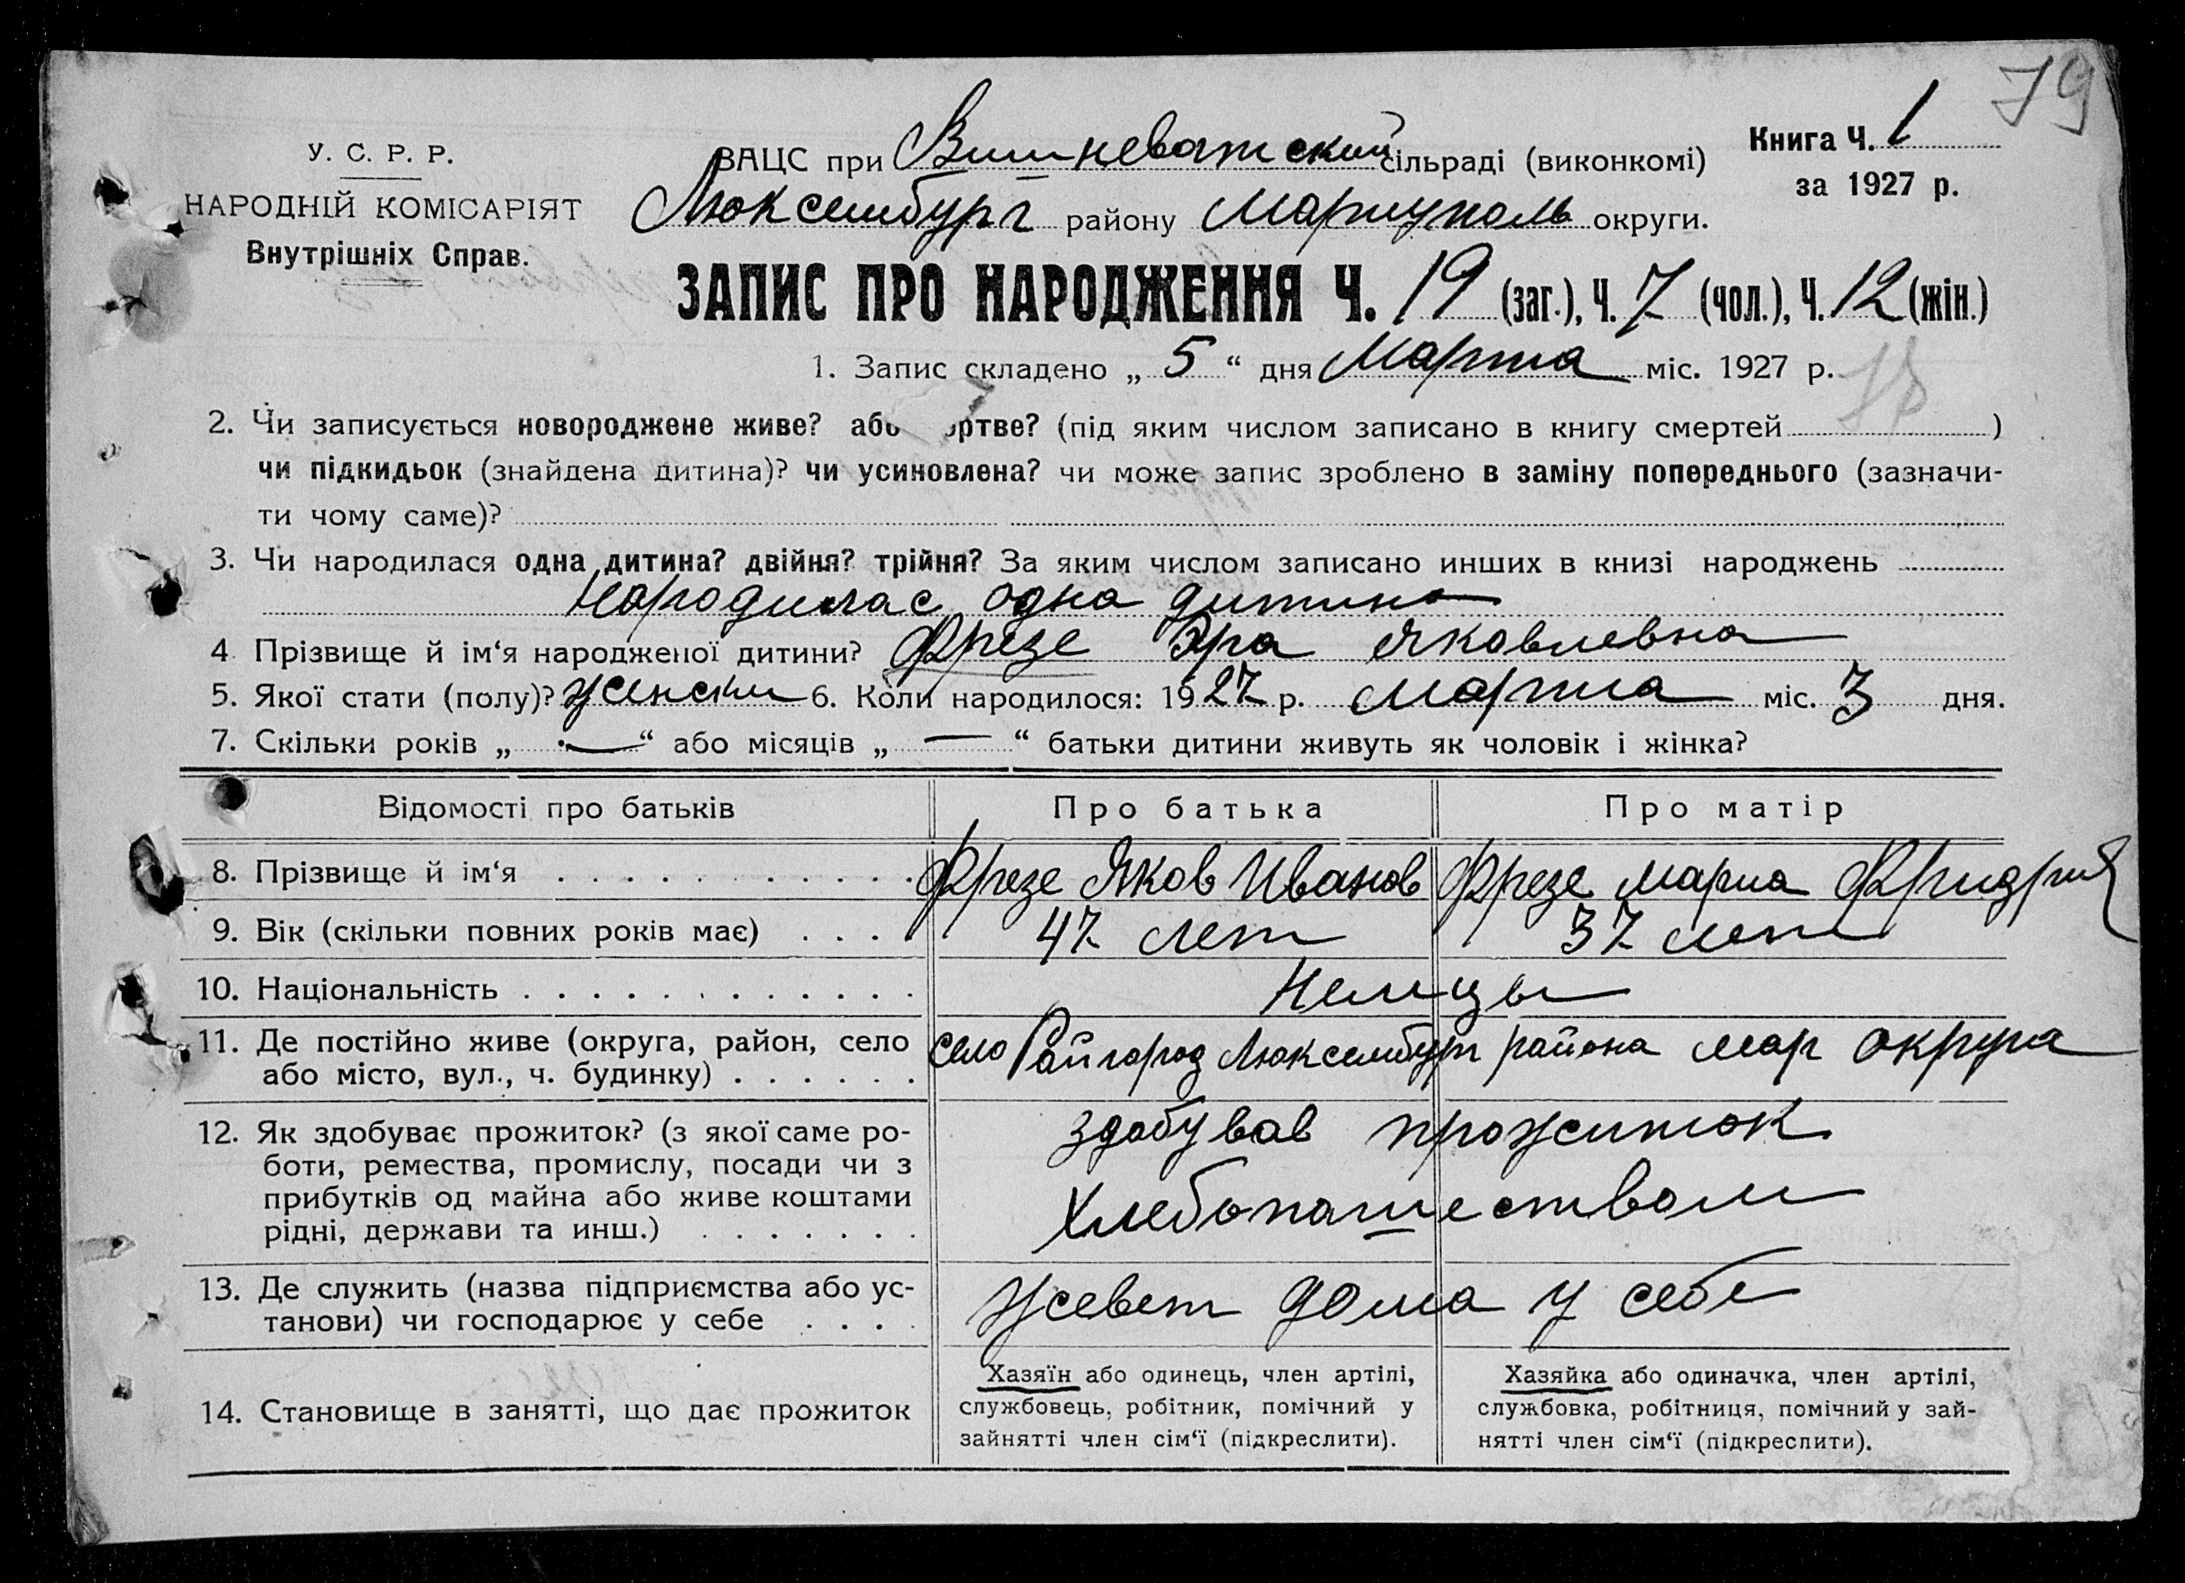 79
У. С. Р. Р.
НАРОДНІЙ КОМІСАРІЯТ
Внутрішніх Справ.
ВАЦС при Вишневатский сільраді (виконкомі)
Книга Ч. 1
за 1927 р.
Люксембург району Мариуполь округи.
ЗАПИС ПРО НАРОДЖЕННЯ Ч. 19 (заг.), Ч. 7 (чол.), Ч. 12 (жін.)
1. Запис складено „ 5 “ дня Марта міс. 1927 р.
2. Чи записується новороджене живе? або ртве? (під яким числом записано в книгу смертей )
чи підкидьок (знайдена дитина)? чи усиновлена? чи може запис зроблено в заміну попереднього (зазначи-
ти чому саме)?
3. Чи народилася одна дитина? двійня? трійня? За яким числом записано инших в книзі народжень
Народилас одна дитина
4 Прізвище й ім‘я народженої дитини? Фрезе Эра Яковлевна
5. Якої стати (полу)? женски 6. Коли народилося: 1927 р. Марта міс. 3 дня.
7. Скільки років „ — “ або місяців „ — “ батьки дитини живуть як чоловік і жінка?
Відомості про батьків Про батька Про матір
8. Прізвище й ім‘я Фрезе Яков Иванов Фрезе Мария Фридрих
9. Вік (скільки повних років має) 47 лет 37 лет
10. Національність Немцы
11. Де постійно живе (округа, район, село
або місто, вул., ч. будинку)
село Райгород Люксембург района мар округа
12. Як здобуває прожиток? (з якої саме ро-
боти, ремества, промислу, посади чи з
прибутків од майна або живе коштами
рідні, держави та инш.)
здобував прожиток
Хлебопашеством
13. Де служить (назва підприємства або ус-
танови) чи господарює у себе
жевет дома у себе
14. Становище в занятті, що дає прожиток
Хазяїн або одинець, член артілі,
службовець, робітник, помічний у
зайнятті член сім‘ї (підкреслити).
Хазяйка або одиначка, член артілі,
службовка, робітниця, помічний у зай-
нятті член сім‘ї (підкреслити).